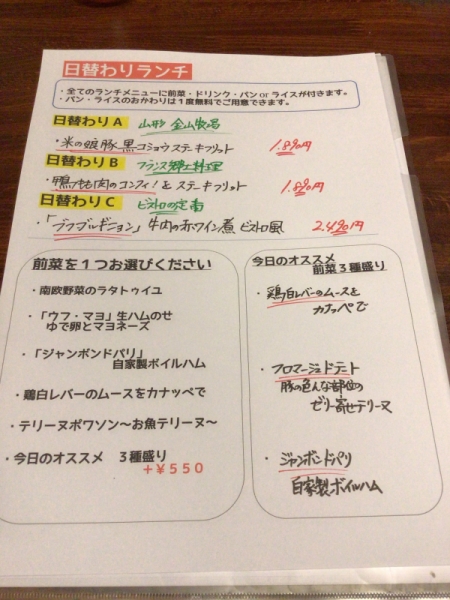 日替わりランチ
・全てのランチメニューに前菜・ドリンク・パン or ライスが付きます。
・パン・ライスのおかわりは１度無料でご用意できます。
日替わりA 山形 金山牧場
・米の娘豚 黒コショウステーキフリット 1.890円
日替わりB フランス郷土料理
・鴨もも肉のコンフィ!& ステーキフリット 1.890円
日替わりC ビストロの定番
・「ブフブルギニョン」牛肉の赤ワイン煮 ビストロ風 2.490円
前菜を１つお選びください
・南欧野菜のラタトゥイユ
・「ウフ・マヨ」生ハムのせ
ゆで卵とマヨネーズ
・「ジャンボンドパリ」
自家製ボイルハム
・鶏白レバーのムースをカナッペで
・テリーヌポワソン～お魚テリーヌ～
・今日のオススメ ３種盛り
＋￥５５０
今日のオススメ
前菜３種盛り
・鶏白レバーのムースを
カナッペで
・フロマージュドテート
豚の色んな部位の
ゼリー寄せテリーヌ
・ジャンボンドパリ
自家製ボイルハム